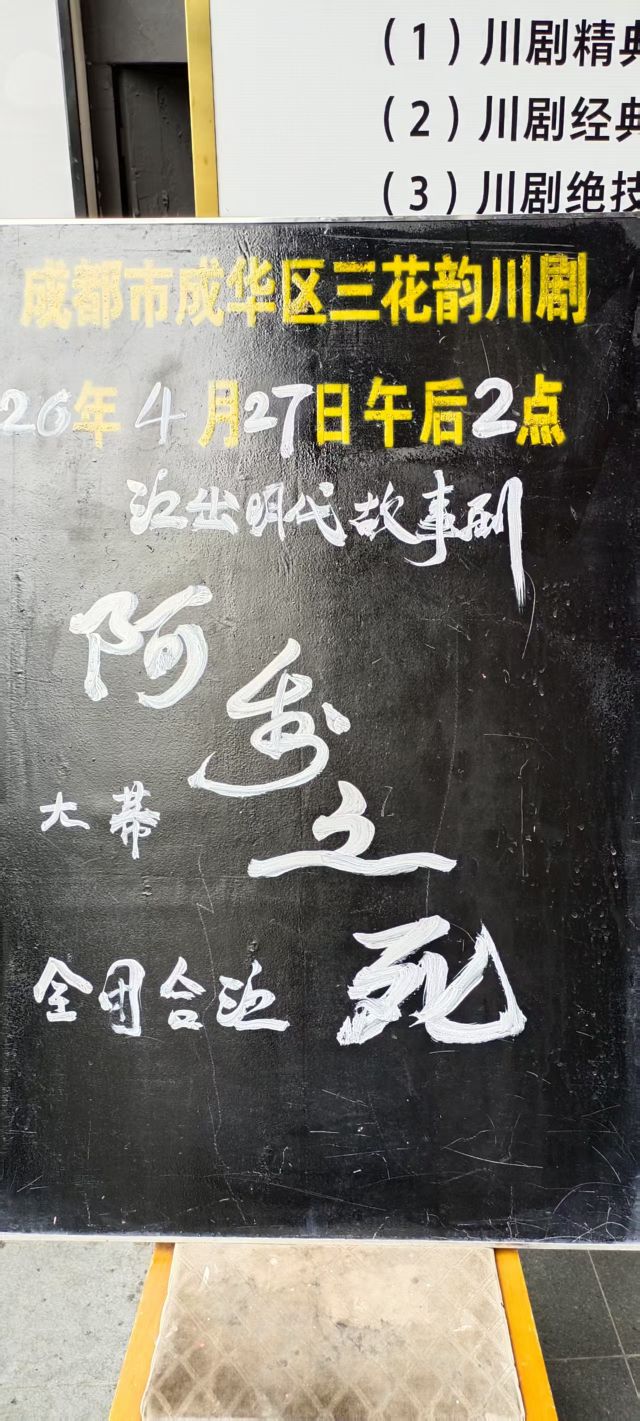 (1)川剧精典
(2)川剧经典
(3)川剧绝技
成都市成华区三花韵川剧
26年4月27日午后2点
演出明代故事剧
阿
之
大幕
全团合演
死